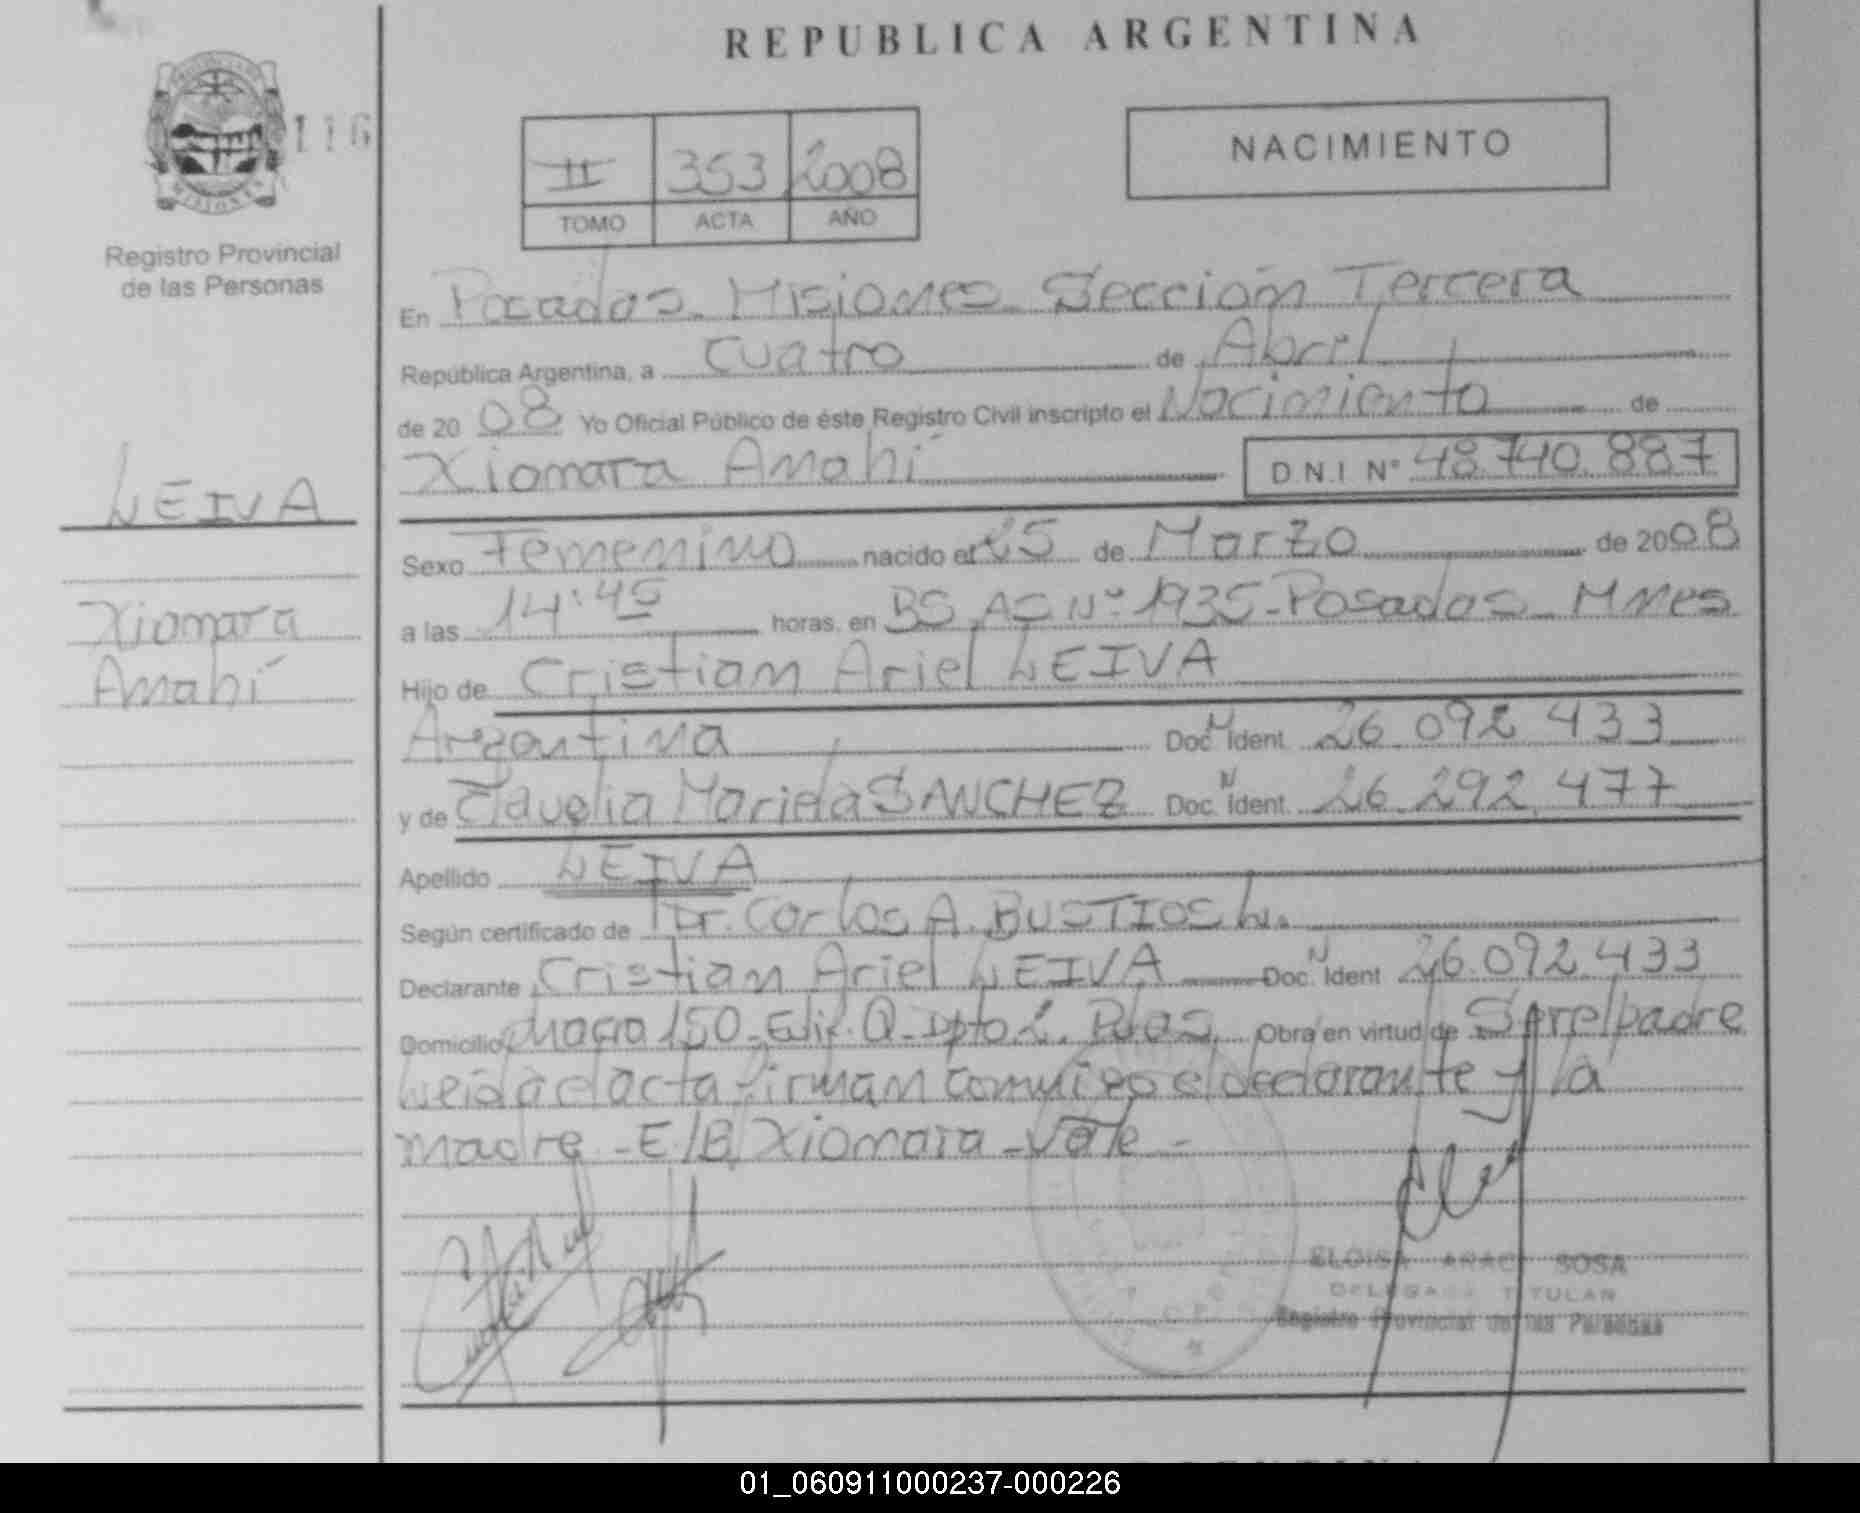 REPUBLICA ARGENTINA
116
NACIMIENTO
II 353 2008
TOMO ACTA AÑO
MISIONES
Registro Provincial
de las Personas
En Posadas Misiones Sección Tercera
República Argentina, a cuatro de Abril
de 2008 Yo Oficial Público de éste Registro Civil inscripto el Nacimiento de
Xiomara Anahí D.N.I Nº 48.740.887
LEIVA
Sexo Femenino nacido el 25 de Marzo de 2008
Xiomara
Anahí
a las 14:45 horas, en BS AS Nº 1935 - Posadas - Mnes
Hijo de Cristian Ariel LEIVA
Argentina Doc. N Ident. 26.092.433
y de Claudia Mariela SANCHEZ Doc. N Ident. 26.292.477
Apellido LEIVA
Según certificado de Dr. Carlos A. BUSTIOS L.
Declarante Cristian Ariel LEIVA Doc. N Ident 26.092.433
Domicilio chacra 150 - Edif. Q - Dpto 2. Pdas. Obra en virtud de Ser el padre
Leida el acta firman conmigo el declarante y la
madre - E/B Xiomara - Vale -
ELOISA SOSA
TITULAR
Registro Provincial de las Personas
01_060911000237-000226